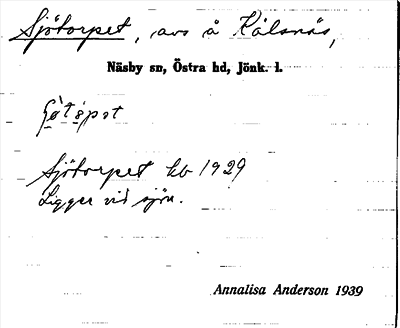 Sjötorpet, avs å Kålsnäs,
Näsby sn, Östra hd, Jönk. l.
Sjötorpet kb 1929
Ligger vid sjön.
Annalisa Anderson 1939